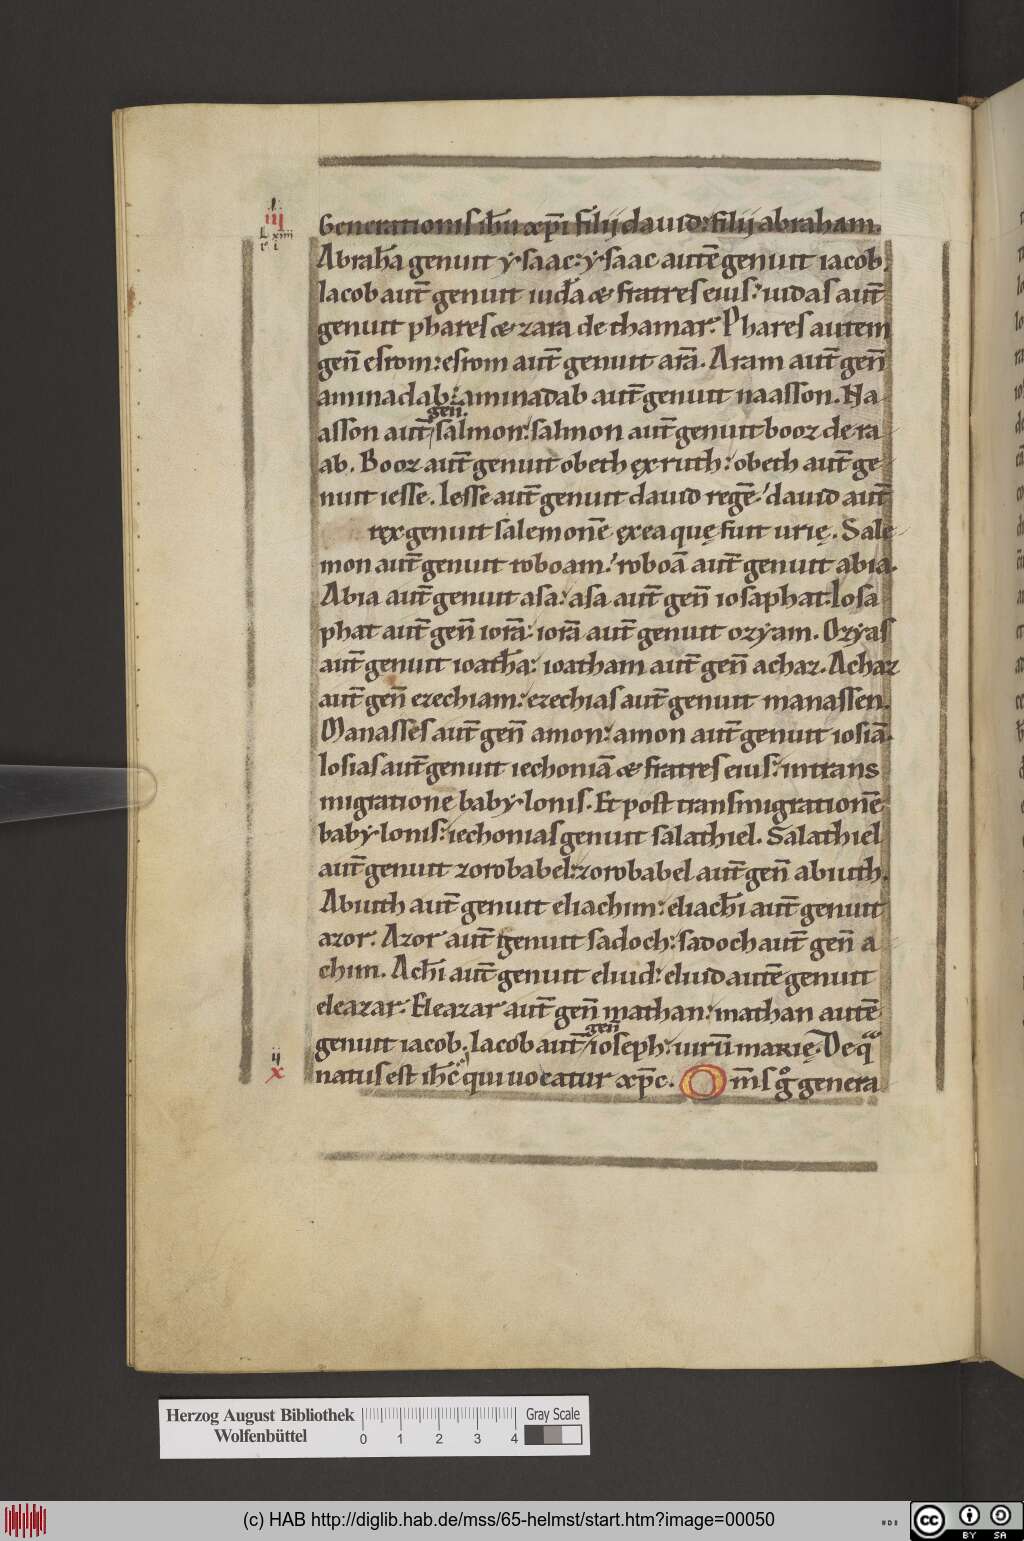 .I.
iij
L xiiii
r i
Generationis ihu xpi filij dauid: filij abraham.
Abrahā genuit ysaac: ysaac autē genuit iacob.
Iacob aut̄ genuit iudā & fratres eius: iudas aut̄
genuit phares & zara de thamar. Phares autem
gen̄ esrom: esrom aut̄ genuit arā. Aram aut̄ gen̄
aminadab: aminadab aut̄ genuit naasson. Na
gen̄.
asson aut̄ salmon: salmon aut̄ genuit booz de ra
ab. Booz aut̄ genuit obeth ex ruth: obeth aut̄ ge
nuit iesse. Iesse aut̄ genuit dauid regē: dauid aut̄
rex genuit salemonē ex ea quę fuit urię. Sale
mon aut̄ genuit roboam: roboā aut̄ genuit abia.
Abia aut̄ genuit asa: asa aut̄ gen̄ iosaphat: Iosa
phat aut̄ gen̄ iorā: iorā aut̄ genuit ozyam. Ozyas
aut̄ genuit ioathā: ioatham aut̄ gen̄ achaz. Achaz
aut̄ gen̄ ezechiam: ezechias aut̄ genuit manassen.
Manasses aut̄ gen̄ amon: amon aut̄ genuit iosiā.
Iosias aut̄ genuit iechoniā & fratres eius: in trans
migratione babylonis. Et post transmigrationē
babylonis: iechonias genuit salathiel. Salathiel
aut̄ genuit zorobabel: zorobabel aut̄ gen̄ abiuth.
Abiuth aut̄ genuit eliachim: eliachī aut̄ genuit
azor. Azor aut̄ genuit sadoch: sadoch aut̄ gen̄ a
chim. Achī aut̄ genuit eliud: eliud autē genuit
eleazar. Eleazar aut̄ gen̄ mathan: mathan autē
gen̄
genuit iacob. Iacob aut̄ ioseph: uirū marię. De q̊
ij
x
natus est ihc̄ qui uocatur xp̄c. Om̄s gͦ genera
Herzog August Bibliothek
Wolfenbüttel
0 1 2 3 4
Gray Scale
(c) HAB http://diglib.hab.de/mss/65-helmst/start.htm?image=00050
cc BY SA